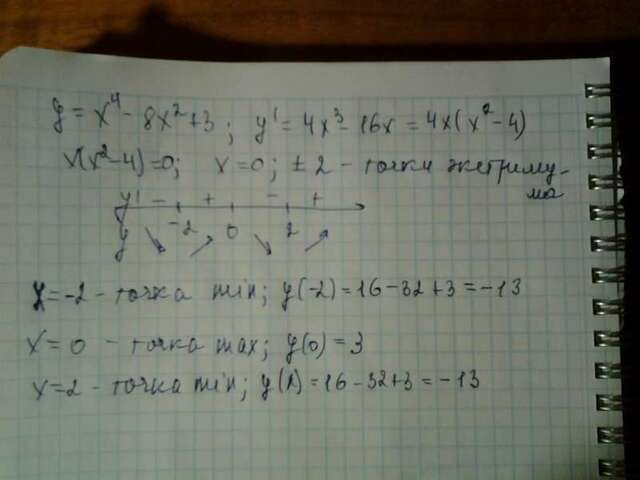 y = x⁴ - 8x² + 3; y' = 4x³ - 16x = 4x(x² - 4)
x(x² - 4) = 0; x = 0; ± 2 - точки экстриму-
ма
y' - + - +
y -2 0 2
x = -2 - точка min; y(-2) = 16 - 32 + 3 = -13
x = 0 - точка max; y(0) = 3
x = 2 - точка min; y(2) = 16 - 32 + 3 = -13